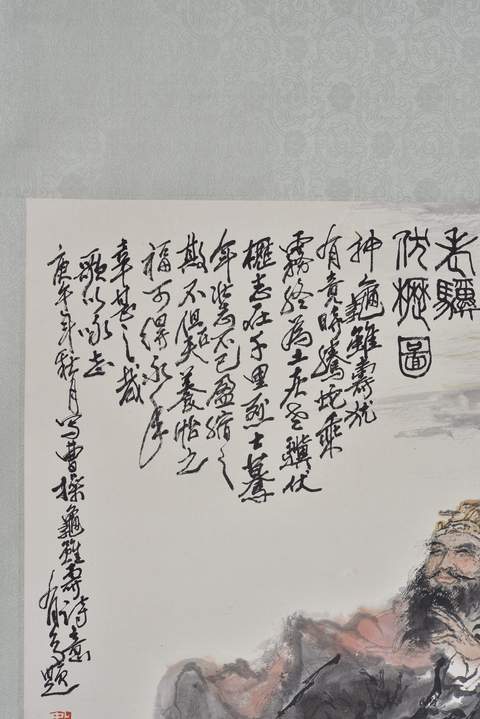 老驥
伏櫪圖
神龜雖壽猶
有竟時騰蛇乘
霧終為土灰老驥伏
櫪志在千里烈士暮
年壯心不已盈縮之
期不但在天養怡之
福可得永年
幸甚至哉
歌以詠志
庚午年秋月寫曹操龜雖壽詩意
題